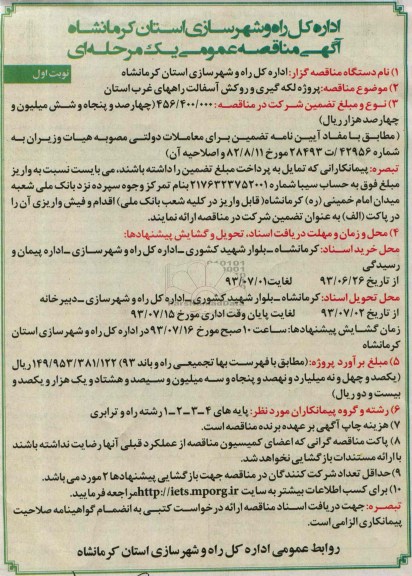 اداره کل راه و شهرسازی استان کرمانشاه
آگهی مناقصه عمومی یک مرحله‌ای
نوبت اول
۱) نام دستگاه مناقصه گزار: اداره کل راه و شهرسازی استان کرمانشاه
۲) موضوع مناقصه: پروژه لکه گیری و روکش آسفالت راههای غرب استان
۳) نوع و مبلغ تضمین شرکت در مناقصه: ۴۵۶/۴۰۰/۰۰۰ (چهارصد و پنجاه و شش میلیون و
چهارصد هزار ریال)
(مطابق با مفاد آیین نامه تضمین برای معاملات دولتی مصوبه هیات وزیران به
شماره ۴۲۹۵۶ /ت ۲۸۴۹۳ مورخ ۸۲/۸/۱۱ و اصلاحیه آن)
تبصره: پیمانکارانی که تمایل به پرداخت مبلغ تضمین را داشته باشند، می بایست نسبت به واریز
مبلغ فوق به حساب سیبا شماره ۲۱۷۶۳۲۳۷۵۲۰۰۱ بنام تمرکز وجوه سپرده نزد بانک ملی شعبه
میدان امام خمینی (ره) کرمانشاه (قابل واریز در کلیه شعب بانک ملی) اقدام و فیش واریزی آن را
در پاکت (الف) به عنوان تضمین شرکت در مناقصه ارائه نمایند.
۴) محل و زمان و مهلت دریافت اسناد، تحویل و گشایش پیشنهادها:
محل خرید اسناد: کرمانشاه ـ بلوار شهید کشوری ـ اداره کل راه و شهرسازی ـ اداره پیمان و
رسیدگی
از تاریخ ۹۳/۰۶/۲۶ لغایت ۹۳/۰۷/۰۱
محل تحویل اسناد: کرمانشاه ـ بلوار شهید کشوری ـ اداره کل راه و شهرسازی ـ دبیرخانه
از تاریخ ۹۳/۰۷/۰۲ لغایت پایان وقت اداری مورخ ۹۳/۰۷/۱۵
زمان گشایش پیشنهادها: ساعت ۱۰ صبح مورخ ۹۳/۰۷/۱۶ در اداره کل راه و شهرسازی استان
کرمانشاه
۵) مبلغ برآورد پروژه: (مطابق با فهرست بها تجمیعی راه و باند ۹۳) ۱۴۹/۹۵۳/۳۸۱/۱۲۲ ریال
(یکصد و چهل و نه میلیارد و نهصد و پنجاه و سه میلیون و سیصد و هشتاد و یک هزار و یکصد و
بیست و دو ریال)
۶) رشته و گروه پیمانکاران مورد نظر: پایه های ۴ـ۳ـ۲ـ۱ رشته راه و ترابری
۷) هزینه چاپ آگهی بر عهده برنده مناقصه است.
۸) پاکت مناقصه گرانی که اعضای کمیسیون مناقصه از عملکرد قبلی آنها رضایت نداشته باشند
با ارائه مستندات بازگشایی نخواهد شد.
۹) حداقل تعداد شرکت کنندگان در مناقصه جهت بازگشایی پیشنهادها ۲ مورد می باشد.
۱۰) برای کسب اطلاعات بیشتر به سایت http://iets.mporg.ir مراجعه فرمایید.
تبصره: جهت دریافت اسناد مناقصه ارائه درخواست کتبی به انضمام گواهینامه صلاحیت
پیمانکاری الزامی است.
روابط عمومی اداره کل راه و شهرسازی استان کرمانشاه